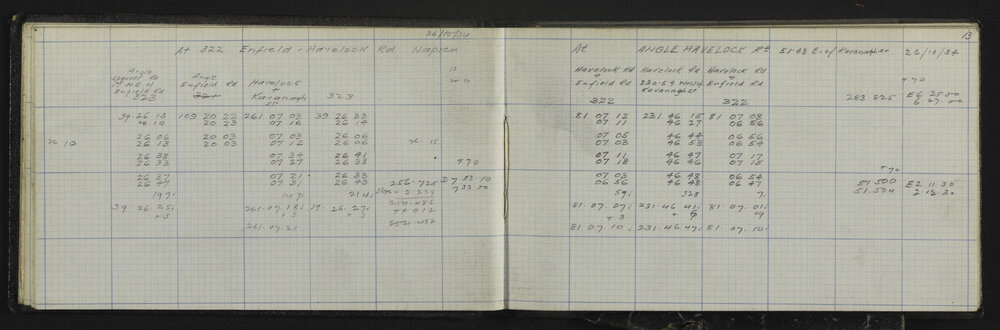 26/10/34
At 322 Enfield - Havelock Rd Napier
Angle
Rd
1st N.E. of
Enfield Rd
323
Angle
Enfield Rd
321
Havelock
+
Kavanagh
St
323
39 26 13 109 20 22 261 07 03 39 26 33
26 10 20 23 07 16 26 14
26 06 20 03 07 03 26 06
26 10 26 13 20 03 07 12 26 06 26.15
26 38 07 34 26 41
26 33 07 27 26 38 T 70
26 37 07 21 26 33
26 47 07 31 26 43 256.725 D 7 33 10
197 147 214 Slope - 2 238 7 33 30
39 26 25 261.07.18 39 26.27 254.486
+3 +3 +3 + + 012
261.07.21 2521.492
13
At ANGLE HAVELOCK Rd 51.48 E. of Kavanagh St 26/10/34
Havelock Rd Havelock Rd Havelock Rd
+ +
Enfield Rd 230.59 West of Enfield Rd
Kavanagh St
T 70
322 322 283 825 E 6 25 50
6 27 00
81 07 12 231 46 15 81 07 08
07 11 46 27 06 56
07 05 46 44 06 56
07 03 46 53 06 54
07 11 46 47 07 17
07 18 46 46 07 15
T 70
07 03 46 48 06 54
06 56 46 48 06 47 51.500 E 2 11 30
59 328 7 51.504 2.12.30
81.07.07 231.46 41 81.07.01
+ 3 + 6 09
81.07.10 231.46.47 81.07.10